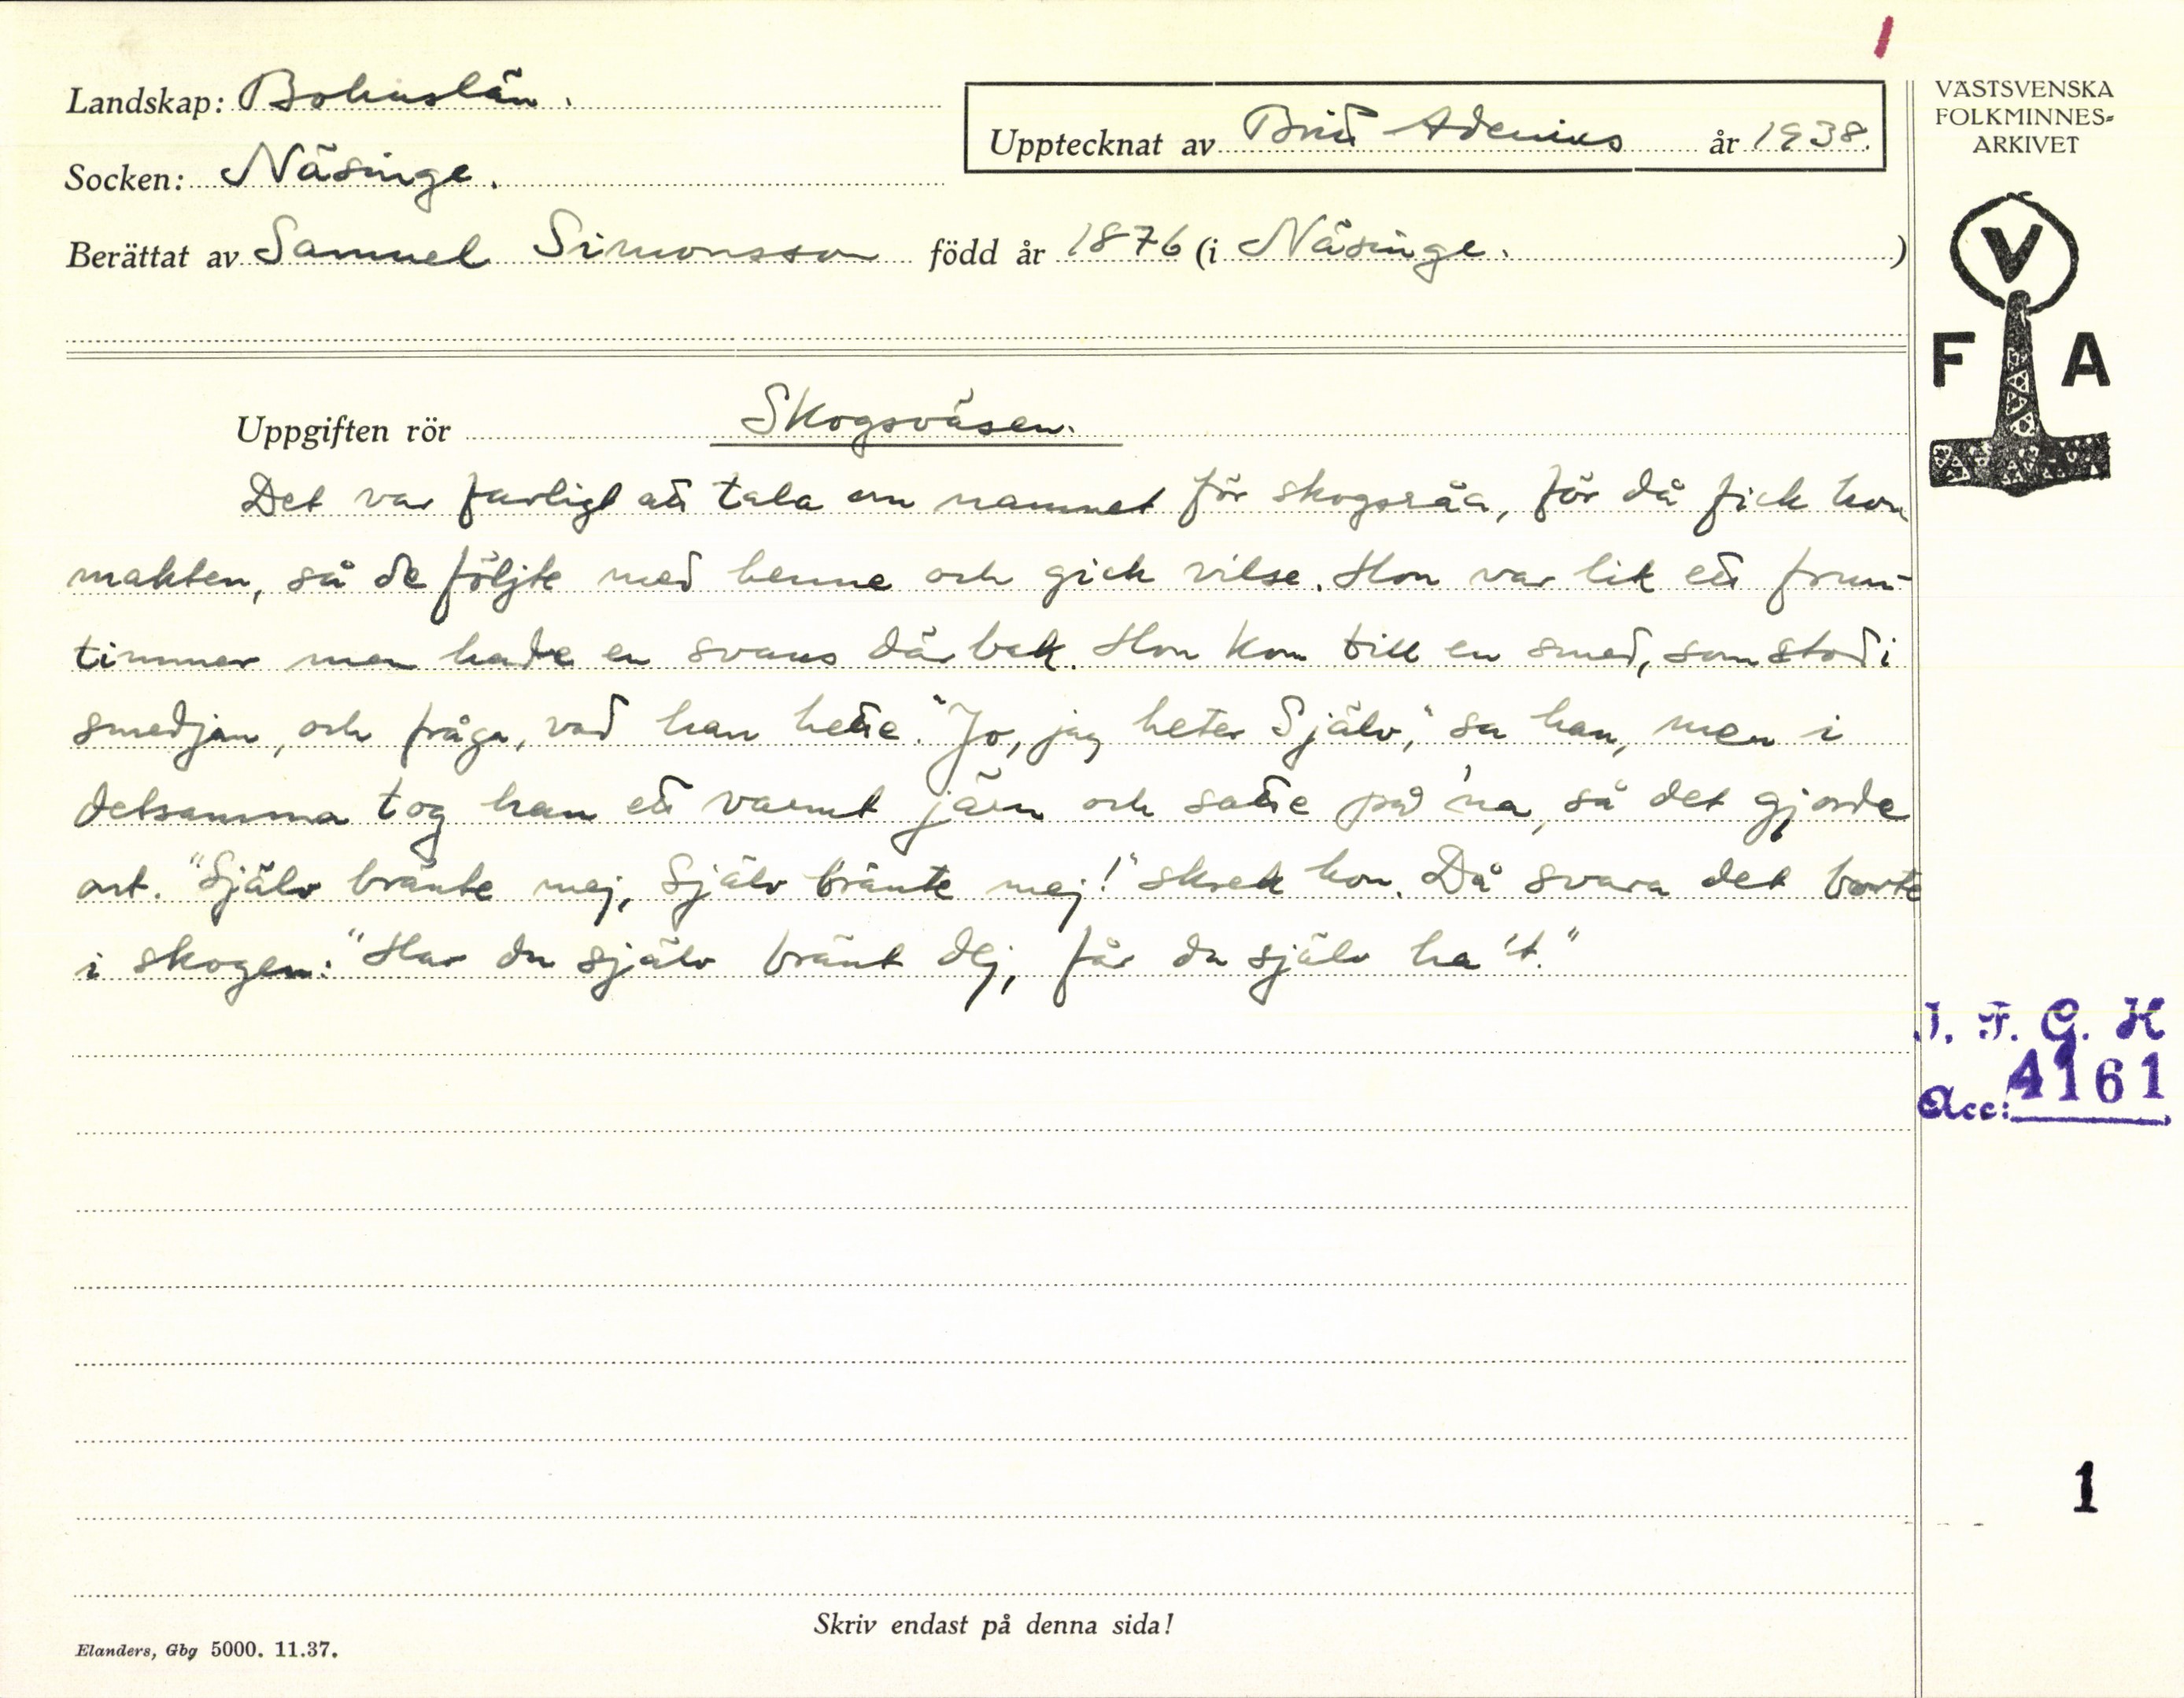 1
Landskap: Bohuslän.
Upptecknat av Britt Adenius år 1938.
Socken: Näsinge.
Berättat av Samuel Simonsson född år 1876 (i Näsinge. )
VÄSTSVENSKA
FOLKMINNES-
ARKIVET
V
F A
Uppgiften rör Skogsväsen.
Det var farligt att tala om namnet för skogsråa, för då fick hon
makten, så de följte med henne och gick vilse. Hon var lik ett frun-
timmer men hade en svans där bak. Hon kom till en smed, som stod i
smedjan, och fråga, vad han hette. "Jo, jag heter Själv," sa han, men i
detsamma tog han ett varmt järn och satte på 'na, så det gjorde
ont. "Själv brände mej, Själv brände mej!" skrek hon. Då svara det borte
i skogen: "Har du själv bränt dej, får du själv ha 't."
I. F. G. H
Acc: 4161
1
Skriv endast på denna sida!
Elanders, Gbg 5000. 11.37.